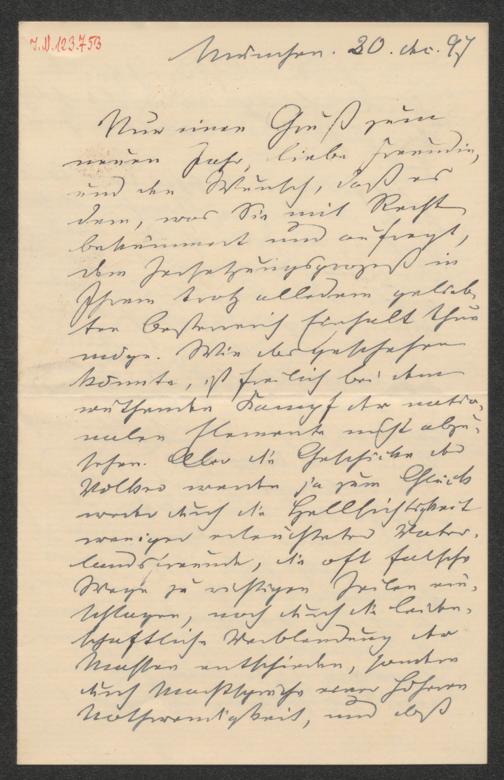 I.N. 123.753
München. 20. Dec. 97
Nur einen Gruß zum
neuen Jahr, liebe Freundin,
und den Wunsch, daß es
dem, was Sie mit Recht
bekümmert und aufregt,
dem Zersetzungsprozeß in
Ihrem trotz alledem gelieb-
ten Oesterreich Einhalt thun
möge. Wie das geschehen
könnte, ist freilich bei dem
wüthenden Kampf der natio-
nalen Elemente nicht abzu-
sehen. Aber die Geschicke der
Völker werden ja zum Glück
weder durch die Hellsichtigkeit
weniger erleuchteter Vater-
landsfreunde, die oft falsche
Wege zu richtigen Zielen ein-
schlagen, noch durch die leiden-
schaftliche Verblendung der
Massen entschieden, sondern
durch Machtsprüche einer höheren
Nothwendigkeit, und daß